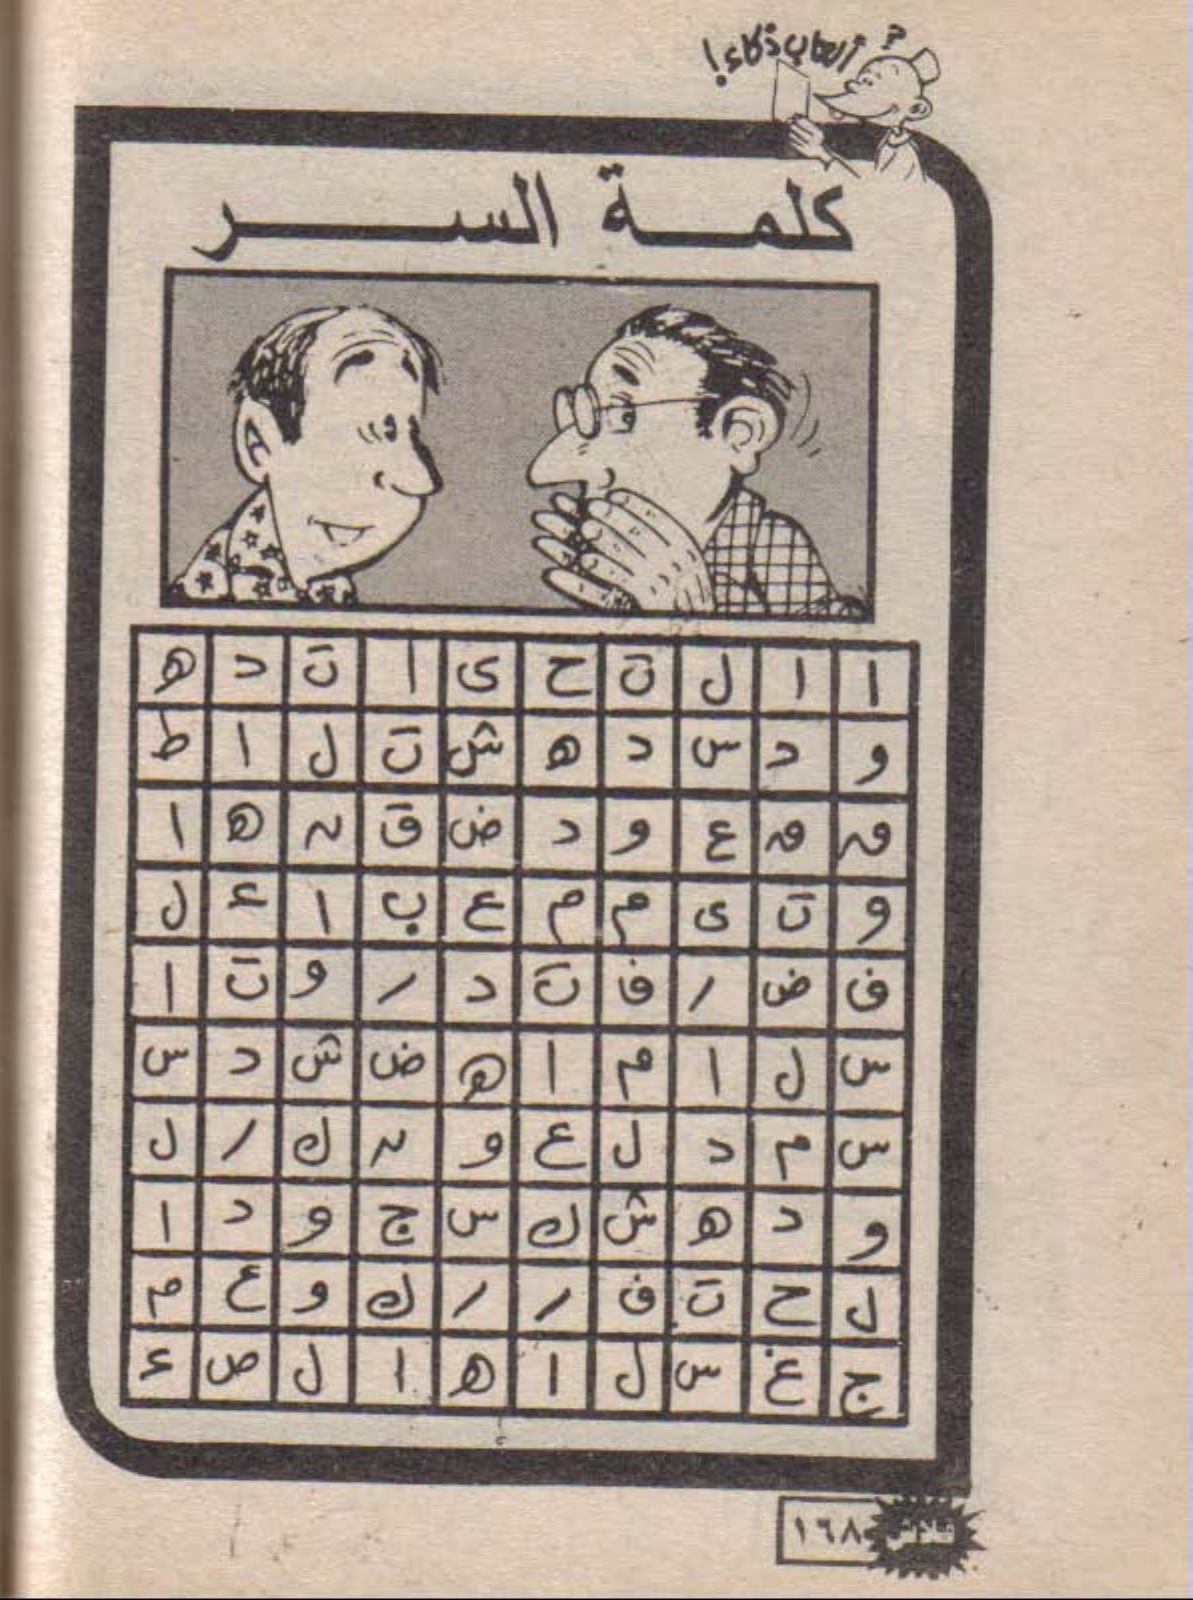 ألعاب ذكاء!
؟
كلمة السر
ا ا ل ت ح ى ا ت د ه
و د س د ه ش ت ل ا ط
م م ع و د ض ق ن ه ا
و ت ى م م ع ب ا ء ل
ف ض ر ف ت د ر و ت ا
س ل ا م ا ه ض ش د س
س م د ل ع و ن ك ر ل
و د ه ش ك س ج و د ا
ل ح ت ف ر ر ك و ع م
ج غ س ل ا ه ا ل ص ء
فلاش ١٦٨